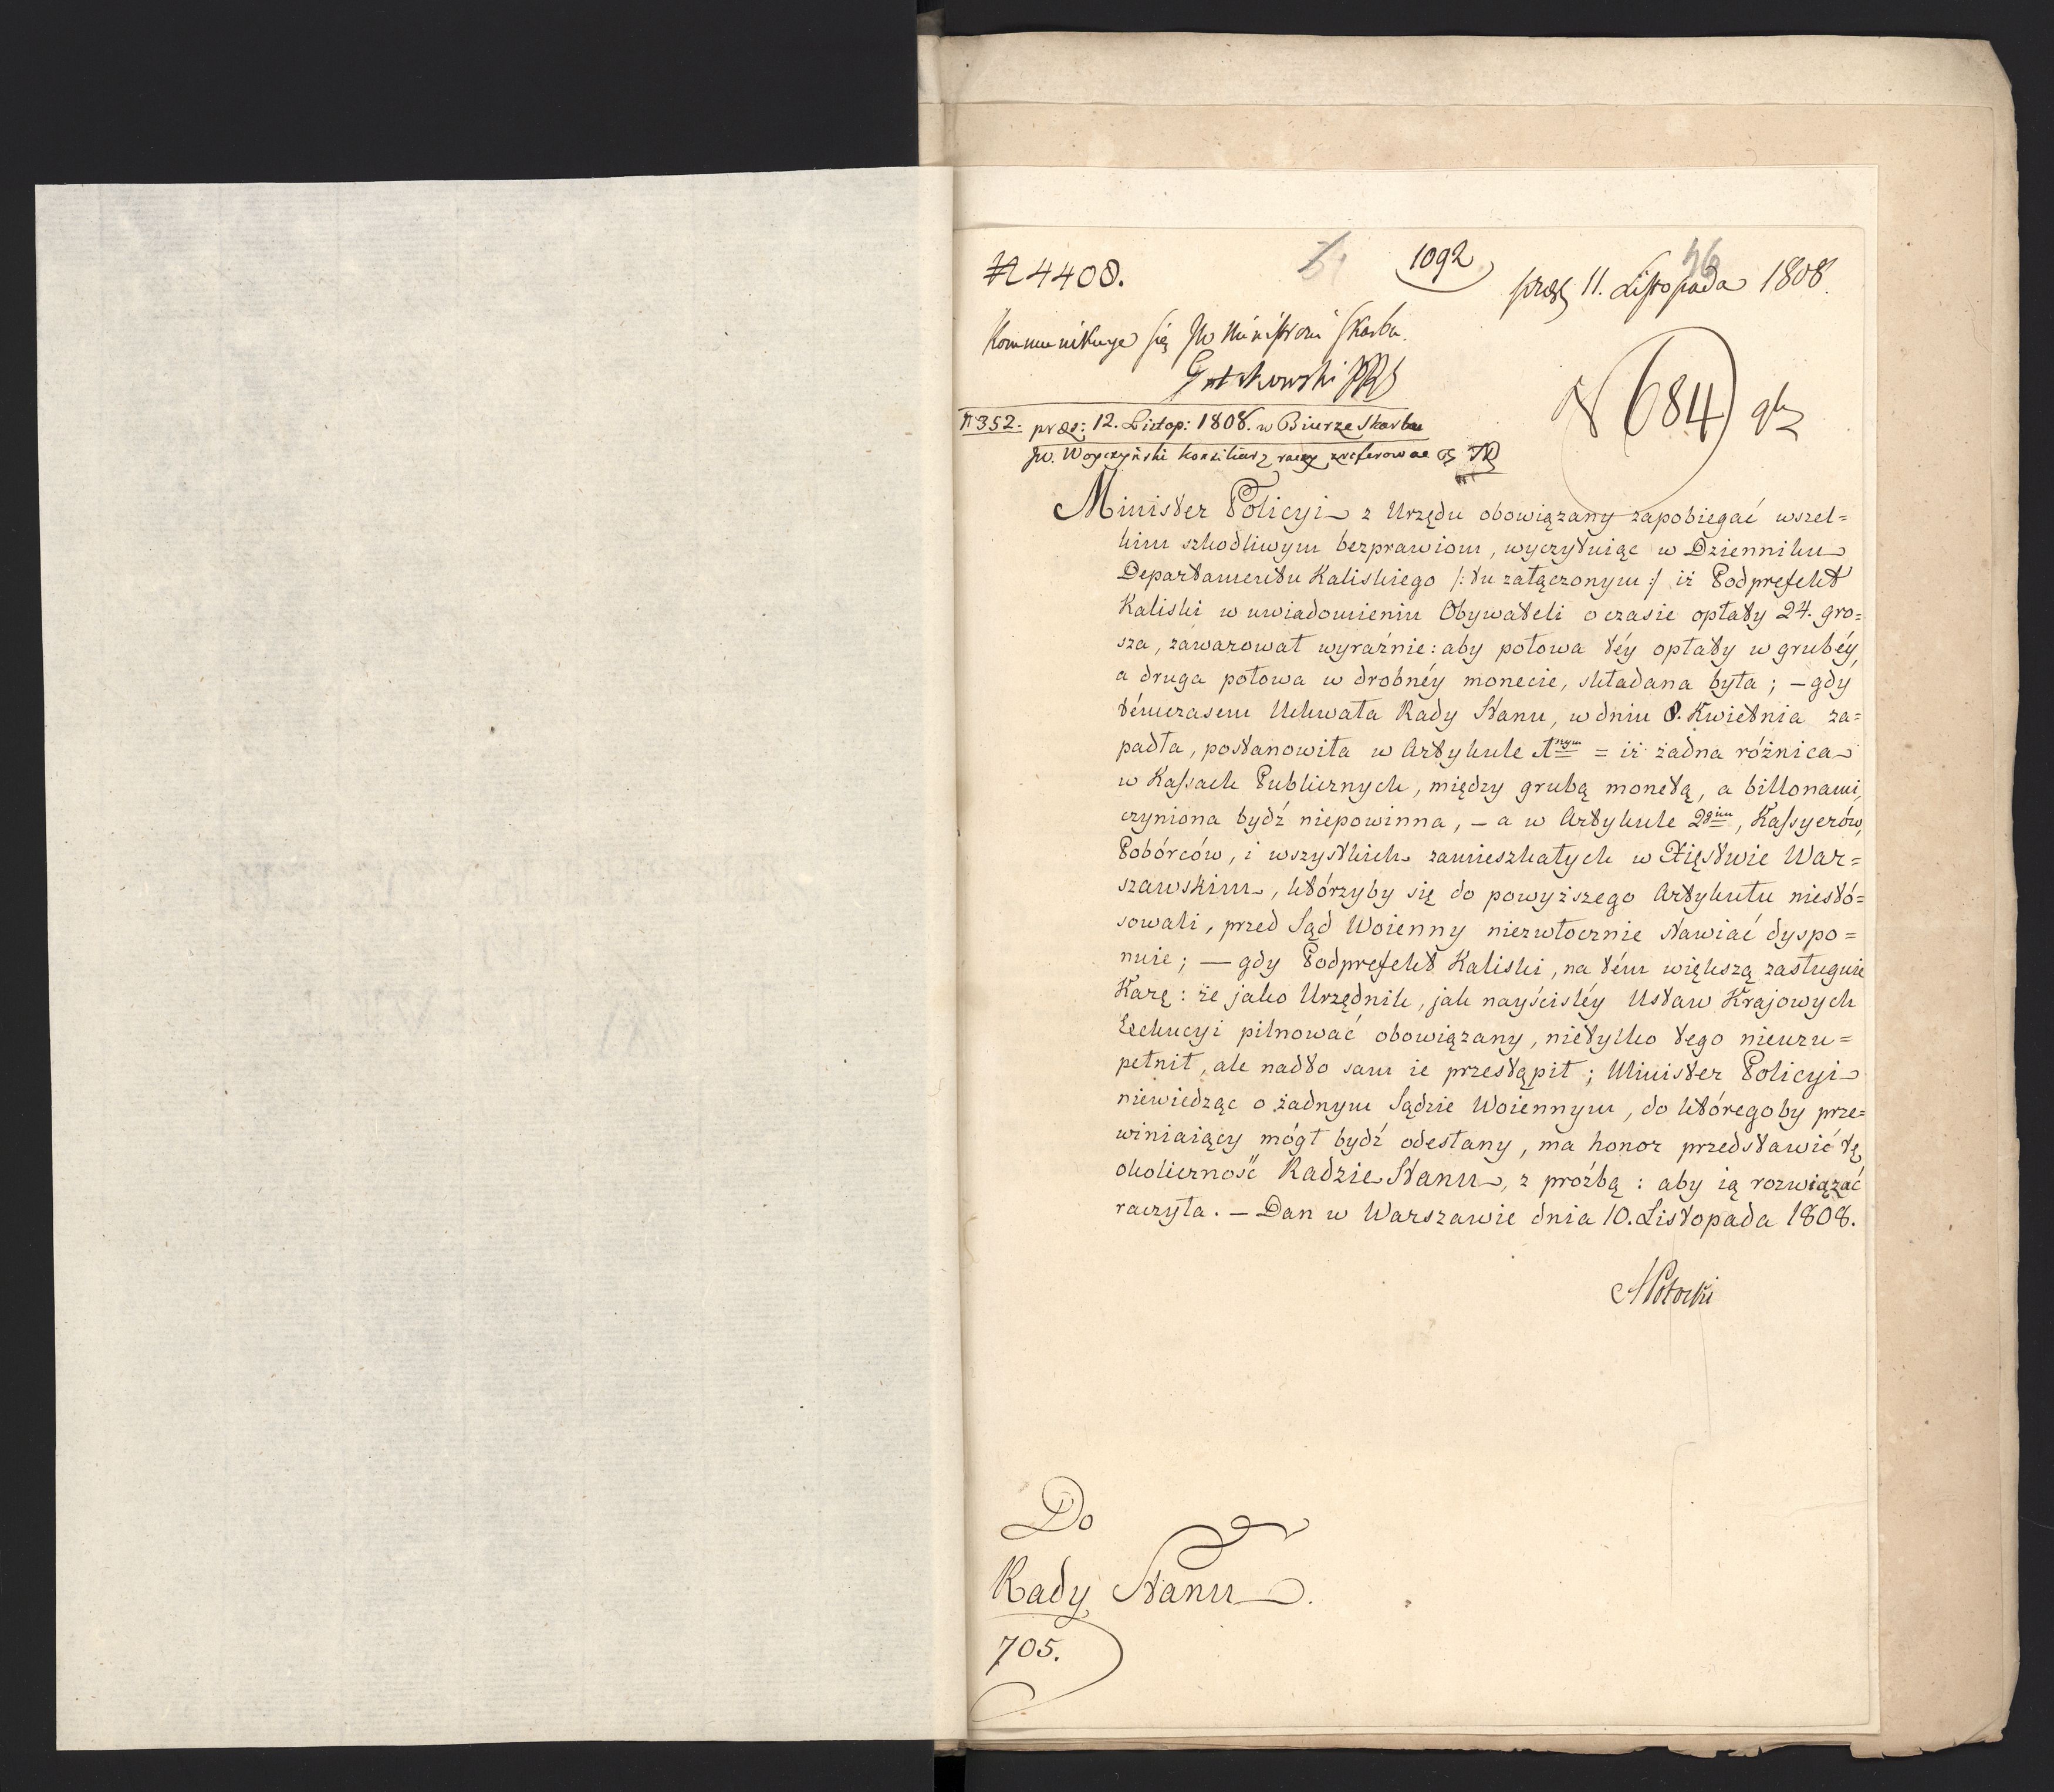 N 4408.
1092
56
præs 11. Listopada 1808.
Kommunikuye się JW Ministrowi Skarbu.
Gutakowski PRS
N 684
N 352. præs: 12. Listop: 1808. w Biurze Skarbu
JW. Woyczyński Konsiliarz raczy zreferować
Minister Policyi z Urzędu obowiązany zapobiegać wszel=
kim szkodliwym bezprawiom, wyczytuiąc w Dzienniku
Departamentu Kaliskiego /: tu załączonym :/ iż Podprefekt
Kaliski w uwiadomieniu Obywateli o czasie opłaty 24. gro=
sza, zawarował wyraźnie: aby połowa téy opłaty w grubéy,
a druga połowa w drobnéy monecie, składana była; – gdy
témczasem Uchwała Rady Stanu, w dniu 8. Kwietnia za=
padła, postanowiła w Artykule 1nym = iż żadna różnica
w Kassach Publicznych, między grubą monetą, a billonami,
czyniona bydź niepowinna, – a w Artykule 2gim, Kassyerów,
Pobórców, i wszystkich zamieszkałych w Xięstwie War=
szawskim, którzyby się do powyższego Artykułu niestó=
sowali, przed Sąd Woienny niezwłocznie stawiać dyspo=
nuie; — gdy Podprefekt Kaliski, na tém większą zasługuie
Karę: że jako Urzędnik, jak nayściśléy Ustaw Krajowych
Exekucyi pilnować obowiązany, nietylko tego nieuzu=
pełnił, ale nadto sam ie przestąpił; Minister Policyi
niewiedząc o żadnym Sądzie Woiennym, do któregoby prze=
winiaiący mógł bydź odesłany, ma honor przedstawić tę
okoliczność Radzie Stanu, z prośbą: aby ią rozwiązać
raczyła. – Dan w Warszawie dnia 10. Listopada 1808.
APotocki
Do
Rady Stanu.
705.